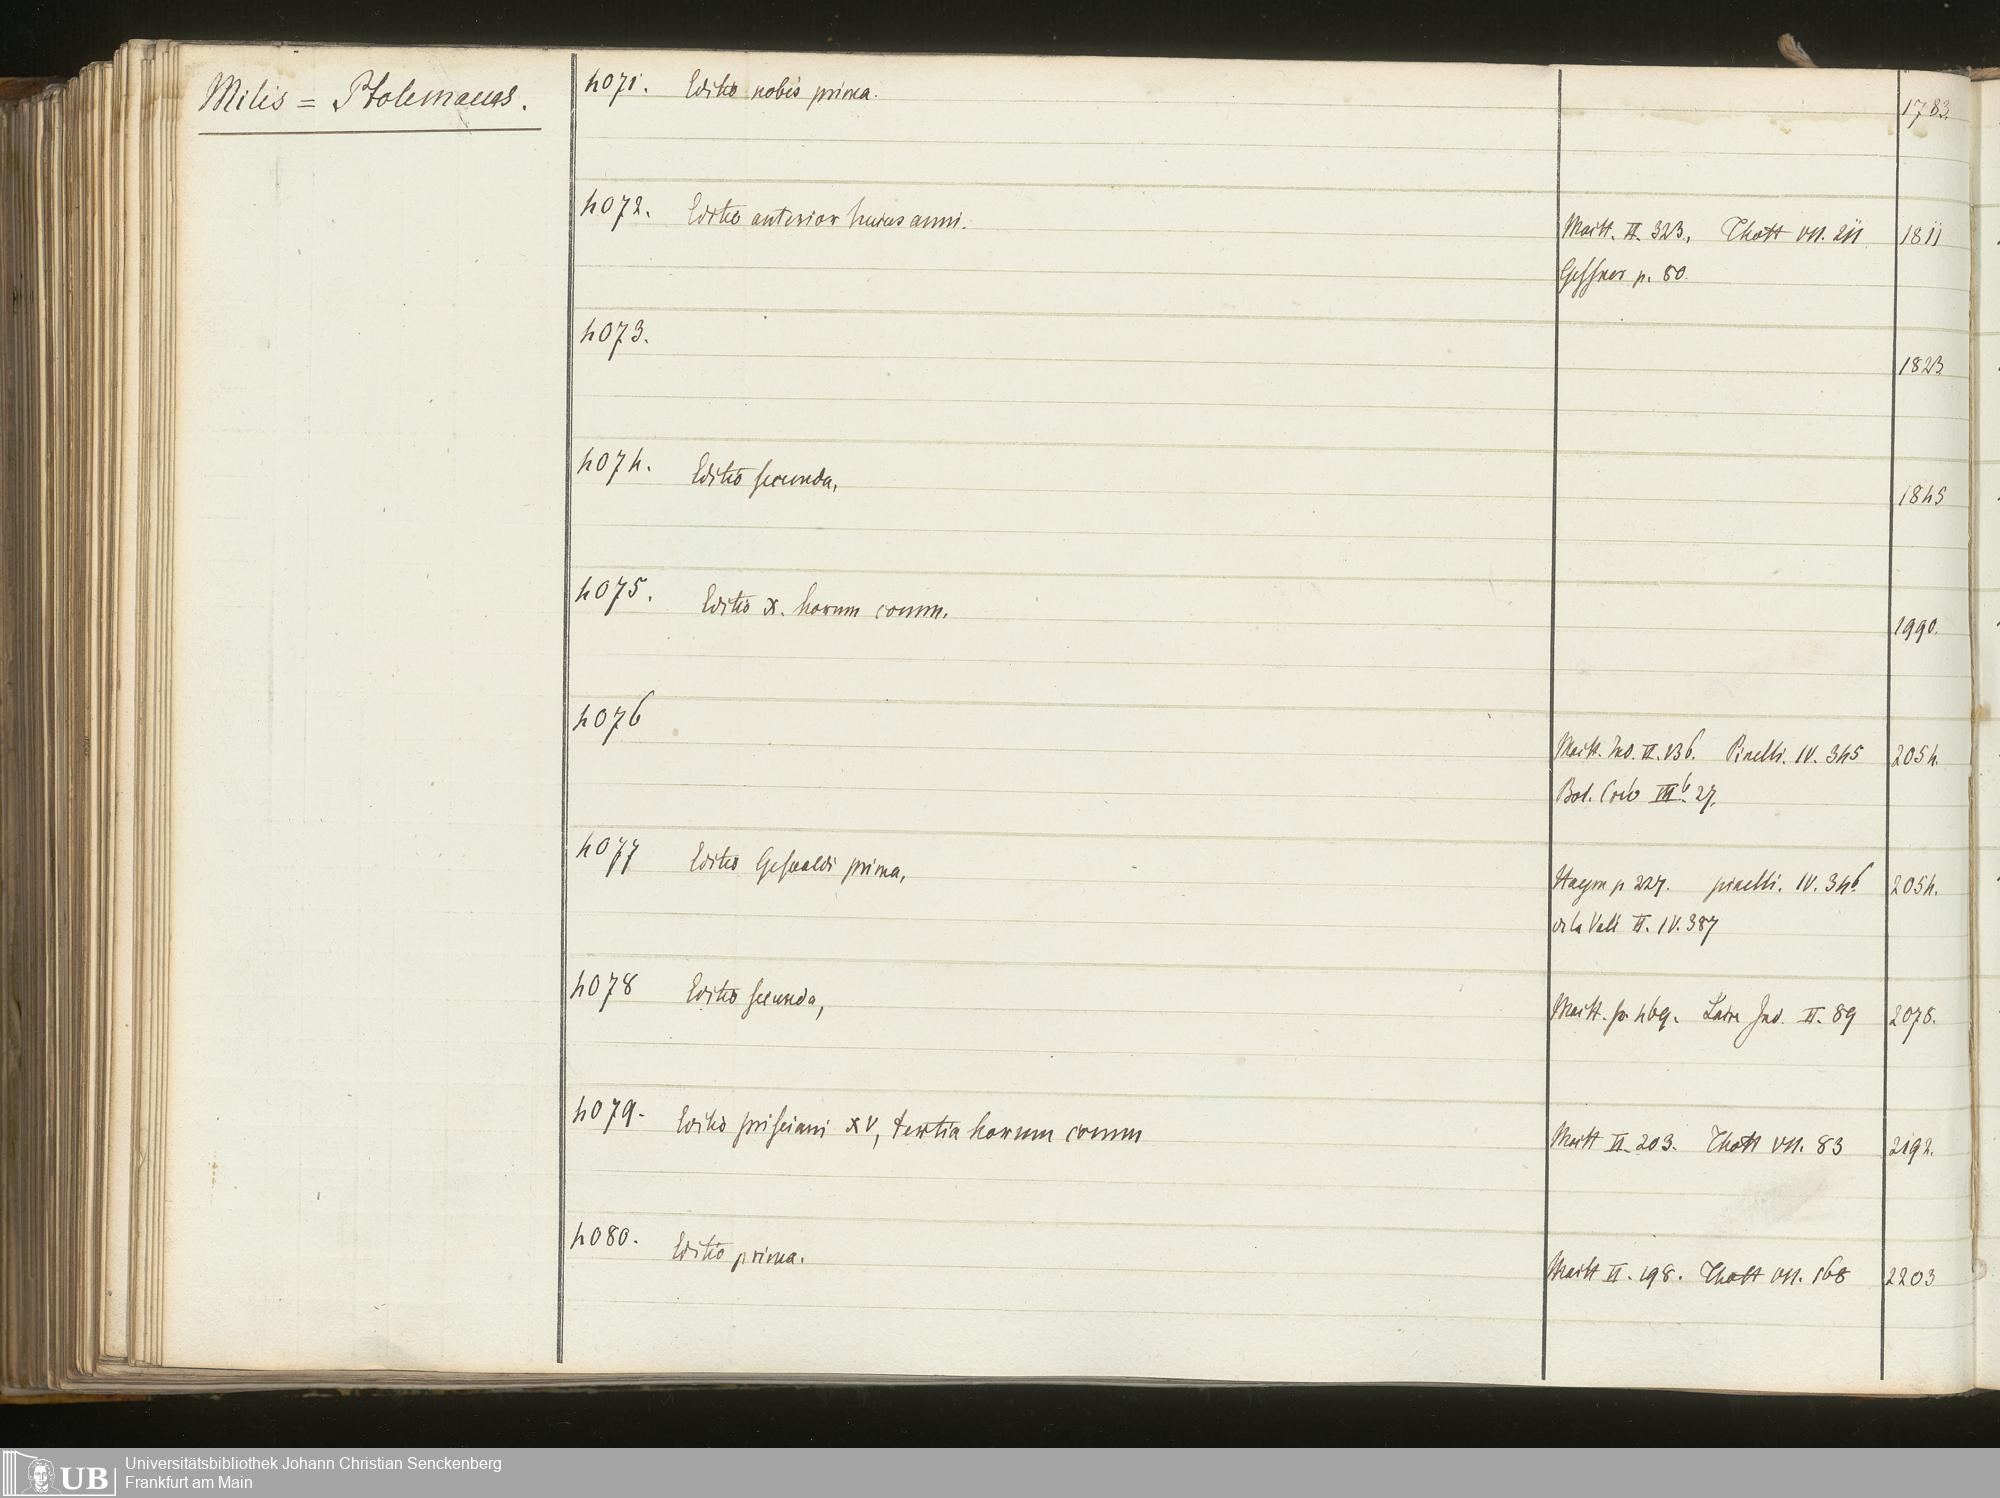 Milis = Ptolemaeus.
4071. Editio nobis prima.
1783.
4072. Editio anterior huius anni.
Maitt. II. 323. Thott VII. 211 1811
Gessner p. 80.
4073.
1823
4074. Editio secunda,
1845
4075. Editio X. horum comm.
1990.
4076
Maitt. Ind. II. 136. Pinelli. IV. 345 2054.
Bol. III b. 27.
4077 Editio Gesualdi prima,
Haym p 227. pinelli. IV. 346 2054.
de la Vall II. IV. 387
4078 Editio secunda,
Maitt. p. 469. Laire Ind. II. 89 2078.
4079. Editio prisciani XV, tertia horum comm
Maitt II. 203. Thott VII. 83 2192.
4080. Editio prima.
Maitt II. 198. Thott VII. 168 2203
UB
Universitätsbibliothek Johann Christian Senckenberg
Frankfurt am Main